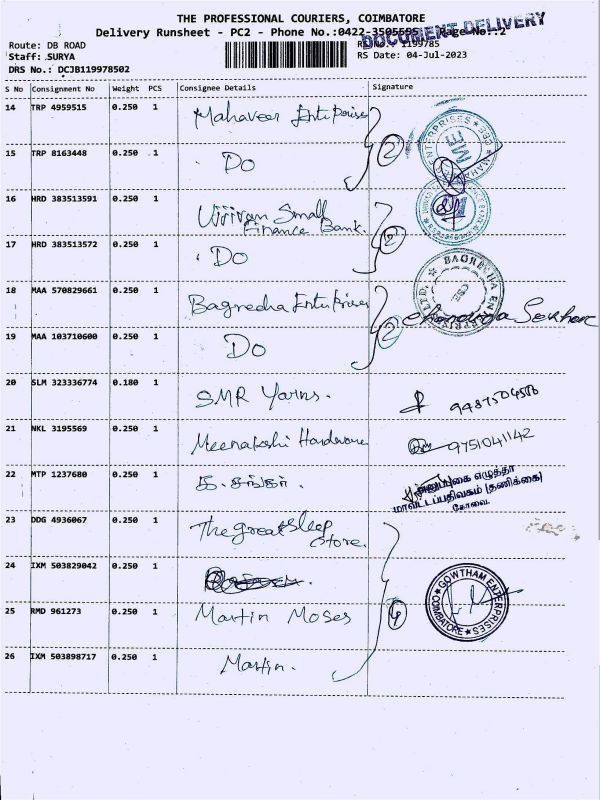 THE PROFESSIONAL COURIERS, COIMBATORE
Delivery Runsheet - PC2 - Phone No.:0422-3505595 Page No.:2
DOCUMENT DELIVERY
Route: DB ROAD
1199785
Staff: SURYA
RS Date: 04-Jul-2023
DRS No.: DCJB119978502
S No Consignment No Weight PCS Consignee Details Signature
14 TRP 4959515 0.250 1 Mahaveer Enterprises
15 TRP 8163448 0.250 1 Do
2
16 HRD 383513591 0.250 1 Ujjivan Small Finance Bank.
17 HRD 383513572 0.250 1 Do
2
18 MAA 570829661 0.250 1 Bagrecha Enterprises
Chandra Sekhar
19 MAA 103710600 0.250 1 Do
2
20 SLM 323336774 0.180 1 SMR Yarns.
21 NKL 3195569 0.250 1 Meenakshi Hardware 9751041142
22 MTP 1237680 0.250 1
மாவட்டப்பதிவகம் (தணிக்கை)
கோவை.
23 DDG 4936067 0.250 1 The great sleep Store.
24 IXM 503829042 0.250 1
GOWTHAM ENTERPRISES
COIMBATORE
25 RMD 961273 0.250 1 Martin Moses
4
26 IXM 503898717 0.250 1 Martin.